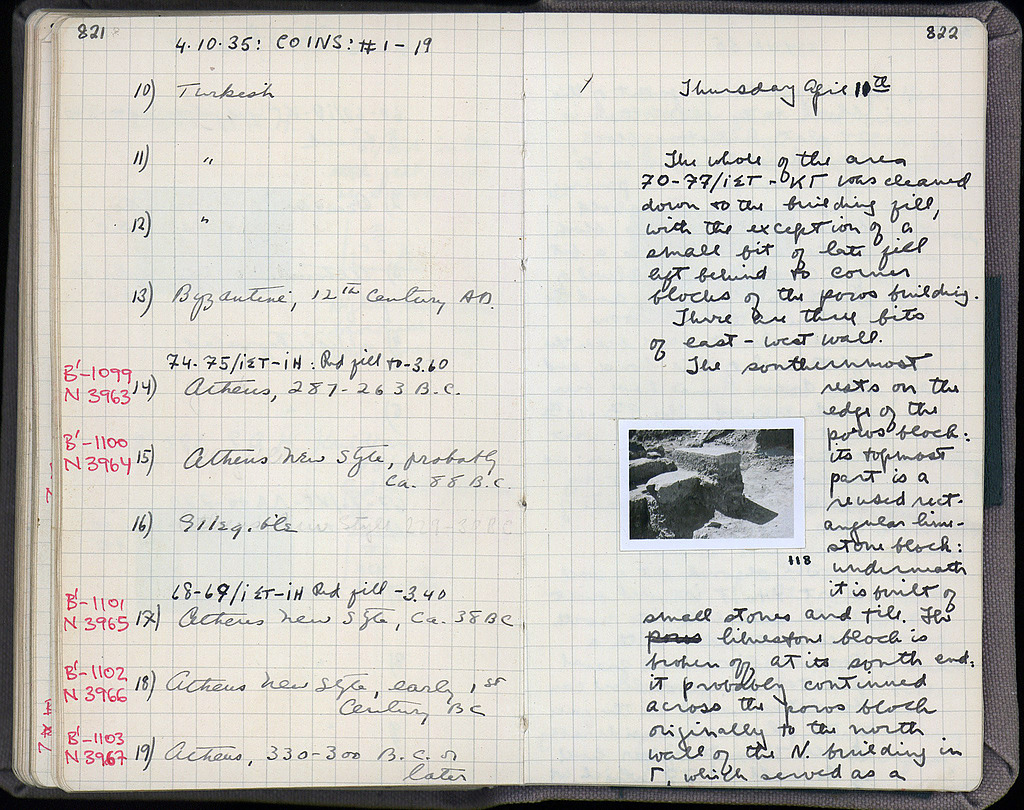 821
4.10.35: COINS: #1-19
10) Turkish
11) "
12) "
13) Byzantine, 12TH Century AD.
74-75/ΙΣΤ-ΙΗ: Red fill to -3.60
B'-1099
N 3963
14) Athens, 287-263 B.C.
B'-1100
N 3964
15) Athens New Style, probably
Ca. 88 B.C.
16) Illegible
68-69/ΙΣΤ-ΙΗ Red fill -3.40
B'-1101
N 3965
17) Athens New Style, Ca. 38 BC
B'-1102
N 3966
18) Athens New Style, early 1st
Century BC
B'-1103
N 3967
19) Athens, 330-300 B.C. or
later
822
Thursday April 11th
The whole of the area
70-77/ΙΣΤ-ΚΓ was cleaned
down to the building fill,
with the exception of a
small bit of late fill
left behind to corner
blocks of the poros building.
There are three bits
of east-west wall.
The southernmost
rests on the
edge of the
poros block:
its topmost
part is a
reused rect-
angular lime-
stone block:
underneath
it is built of
118
small stones and tile. The
poros limestone block is
broken off at its south end:
it probably continued
across the poros block
originally to the north
wall of the N. building in
Γ, which served as a